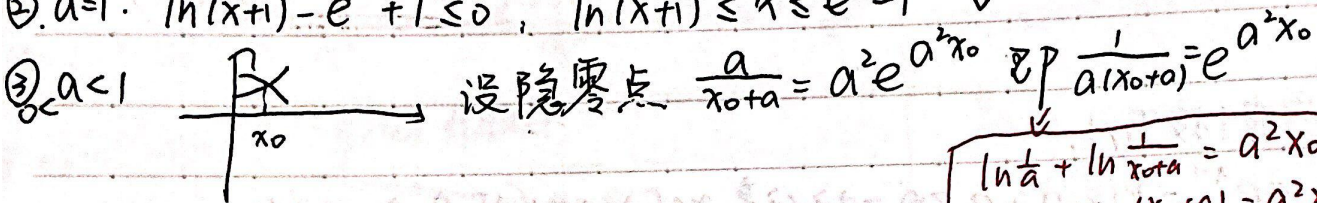 ②. a=1. ln(x+1)-e +1≤0, ln(x+1)≤x≤e
③ 0<a<1 x₀ 设隐零点 a/(x₀+a)=a²e^(a²x₀) 即 1/(a(x₀+a))=e^(a²x₀)
ln 1/a + ln 1/(x₀+a) = a²x₀